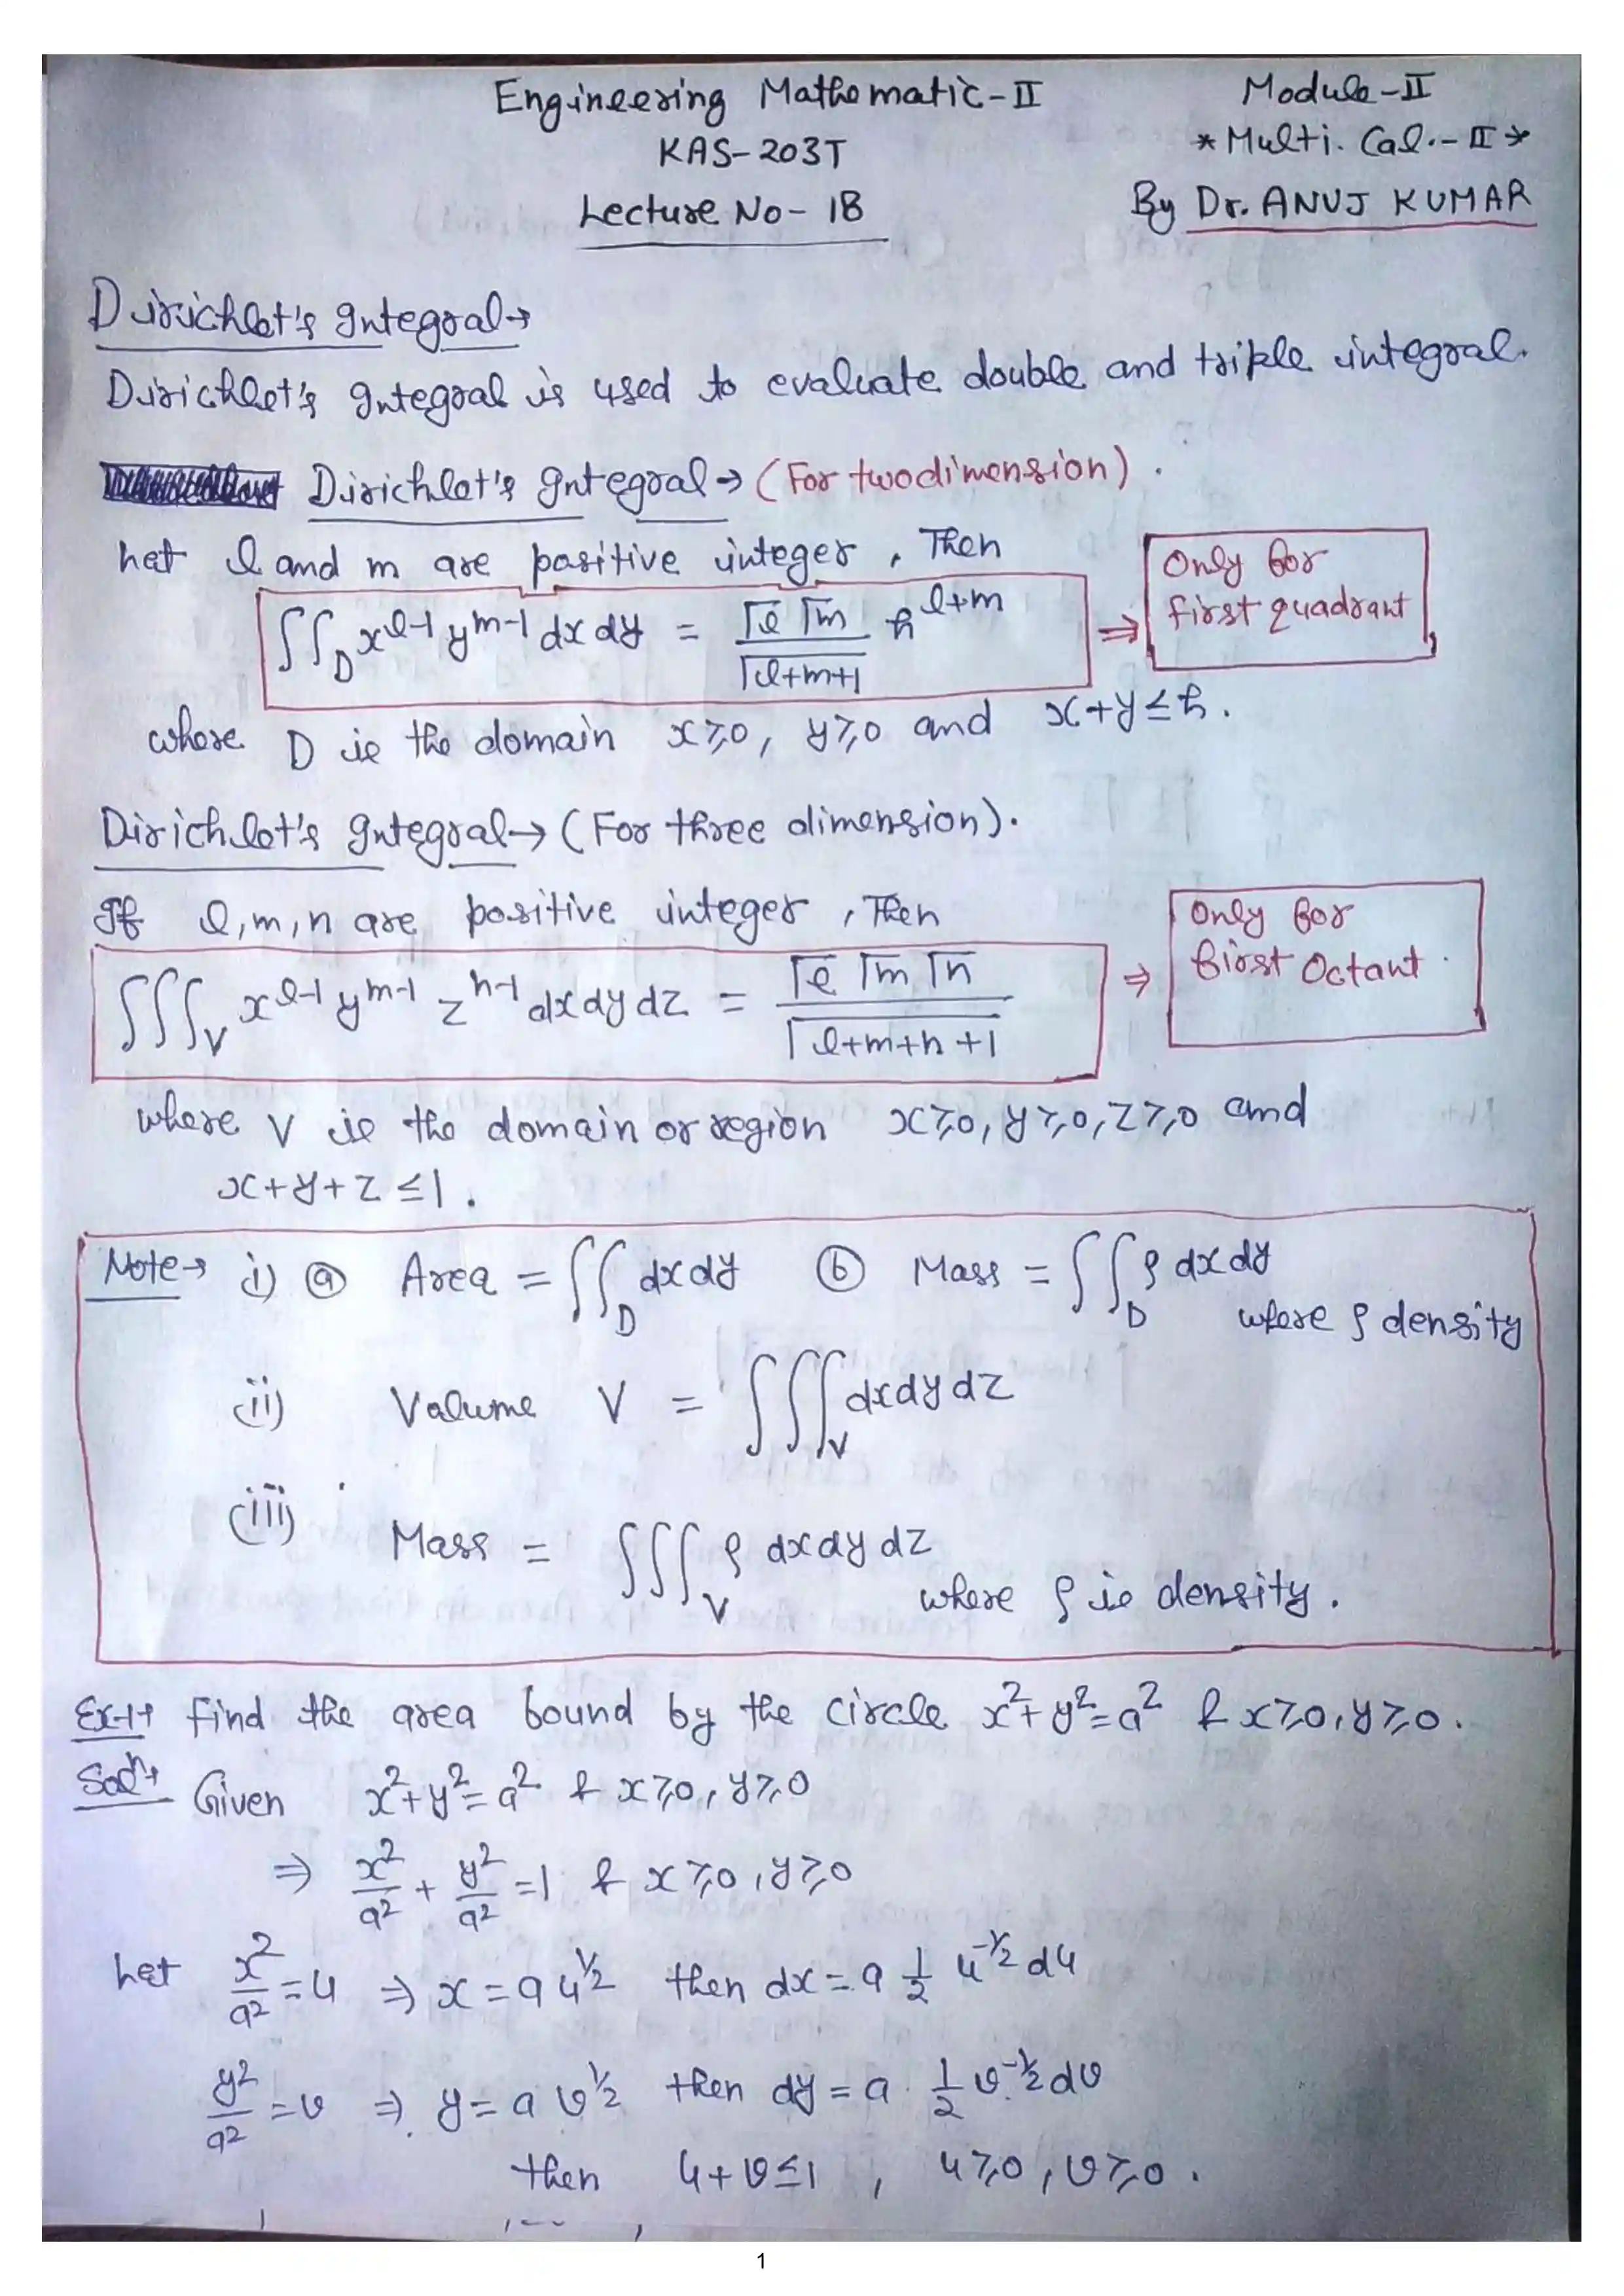 Engineering Mathematic-II
Module-II
KAS-203T
* Multi. Cal.-II *
Lecture No- 18
By Dr. ANUJ KUMAR
Dirichlet's Integral→
Dirichlet's Integral is used to evaluate double and triple integral.
Dirichlet's Integral→ (For two dimension).
Let l and m are positive integer, Then
∫∫_D x^{l-1} y^{m-1} dx dy = (Γl Γm / Γl+m+1) h^{l+m} ⇒ Only for first quadrant
where D is the domain x≥0, y≥0 and x+y≤h.
Dirichlet's Integral→ (For three dimension).
If l,m,n are positive integer, Then
∫∫∫_V x^{l-1} y^{m-1} z^{n-1} dx dy dz = Γl Γm Γn / Γl+m+n+1 ⇒ Only for first Octant.
where V is the domain or region x≥0, y≥0, z≥0 and
x+y+z≤1.
Note→ i) ⓐ Area = ∫∫_D dx dy ⓑ Mass = ∫∫_D ρ dx dy
where ρ density
(ii) Volume V = ∫∫∫_V dx dy dz
(iii) Mass = ∫∫∫_V ρ dx dy dz
where ρ is density.
Ex-1→ Find the area bound by the circle x²+y²=a² & x≥0, y≥0.
Solⁿ→ Given x²+y²=a² & x≥0, y≥0
⇒ x²/a² + y²/a² =1 & x≥0, y≥0
Let x²/a² = u ⇒ x = a u^{1/2} then dx = a 1/2 u^{-1/2} du
y²/a² = v ⇒ y = a v^{1/2} then dy = a 1/2 v^{-1/2} dv
then u+v≤1, u≥0, v≥0.
1